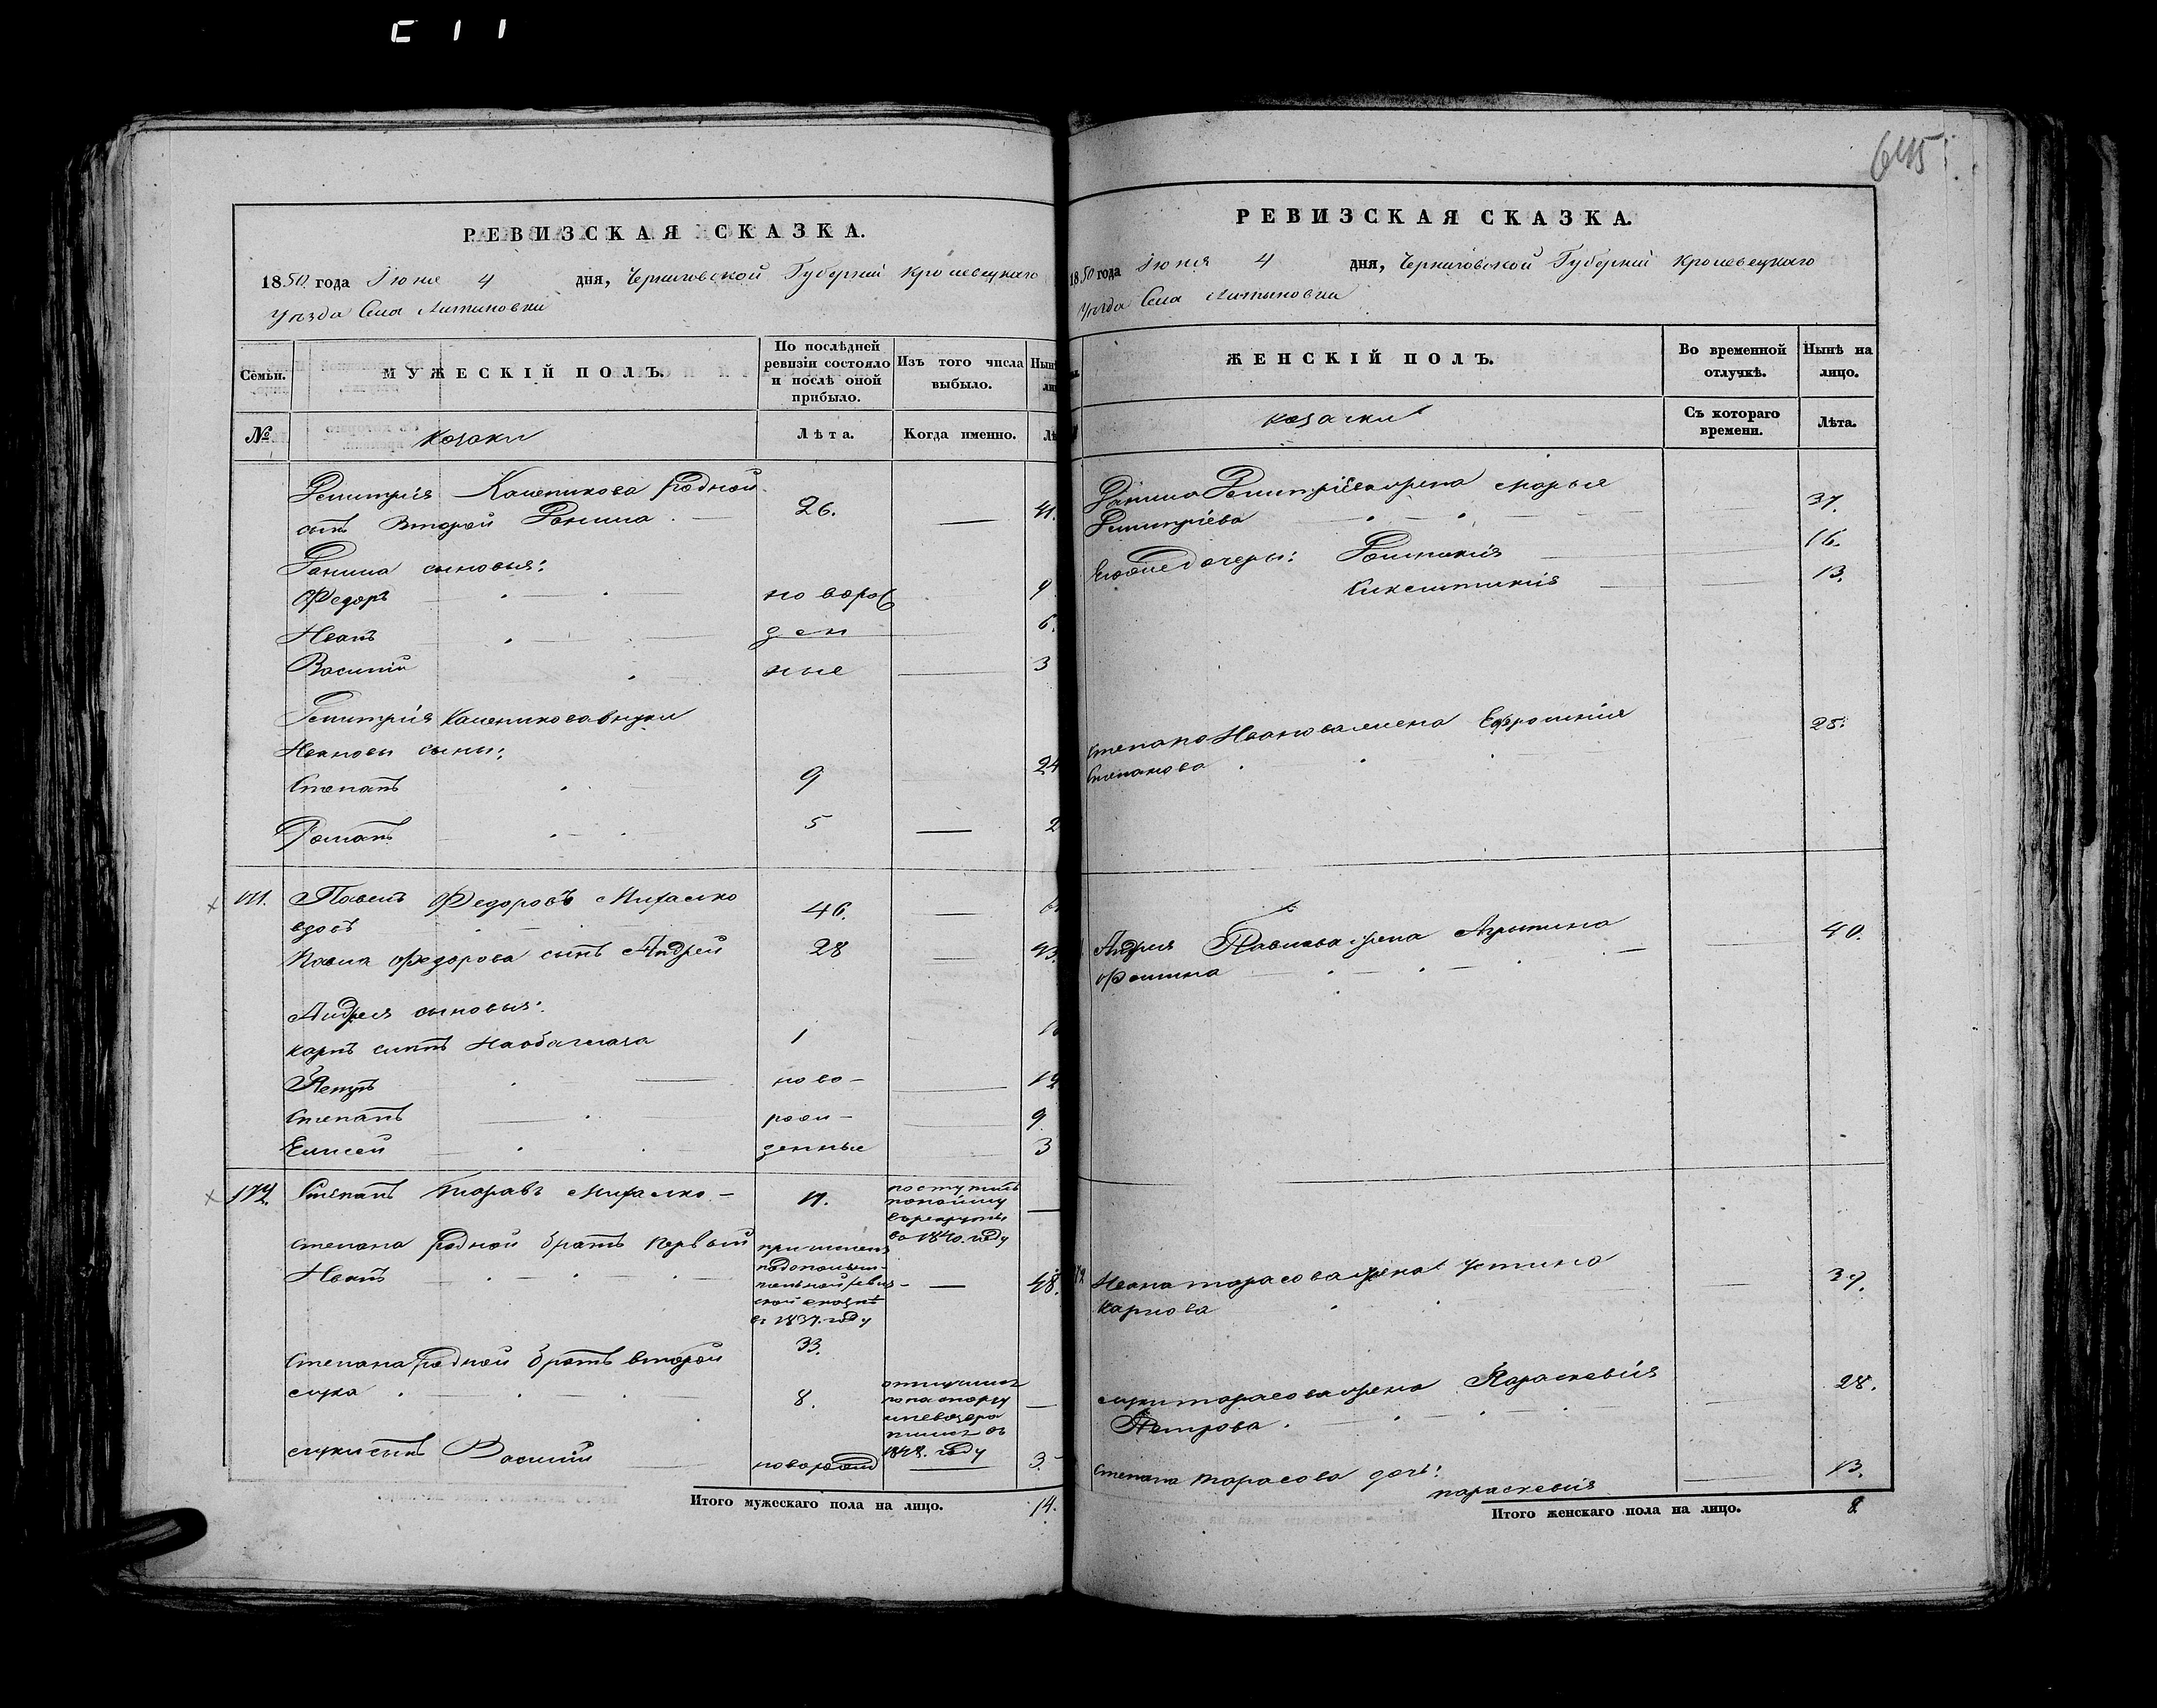 645
РЕВИЗСКАЯ СКАЗКА.
1850 года Июня 4 дня, Черниговской Губерніи Кролевецкаго
Уѣзда Села Литвиновки
Семьи.
МУЖЕСКІЙ ПОЛЪ.
По послѣдней ревизіи состояло и послѣ оной прибыло.
Изъ того числа выбыло.
№
козаки
Лѣта.
Когда именно.
Дмитрія родной
сынъ второй Данила 26. — 41.
Данила сыновья:
Федоръ новорож 9
Иванъ ден 6.
Василій ные 3
Дмитрія внуки
Ивановы сыны:
Степанъ 9 24
Романъ 5 — 2
171. Павелъ Федоровъ Михалко 46. —
вдовъ
Павла Федорова сынъ Андрей 28 43.
Андрея сыновья:
Карпъ 1
Петръ ново- 12
Степанъ рож- 9
Елисей денные 3
172. Степанъ Тарасовъ Михалко — 17. поступилъ
по найму
въ рекруты
въ 1840. году —
Степана родной братъ первый
Иванъ
причисленъ
по дополни-
тельной ревиз-
ской сказкѣ
въ 1837. году
33. — 48.
Степана родной братъ второй
Лука 8. отлучился
по паспорту
и не возвра
тился въ
1848. году —
Луки сынъ Василій новорожд — 3.
Итого мужескаго пола на лицо. 14.
РЕВИЗСКАЯ СКАЗКА.
1850 года Июня 4 дня, Черниговской Губерніи Кролевецкаго
Уѣзда Села Литвиновки
ЖЕНСКІЙ ПОЛЪ.
Во временной отлучкѣ.
Нынѣ на лицо.
козачки
Съ котораго времени.
Лѣта.
Данила Дмитріева жена Марья
Дмитріева 37.
Его же дочери: 16.
13.
Степана Иванова жена Ефросинія 25.
Степанова
Андрея Павлова жена Агрипина 40.
Фомина
172 Ивана Тарасова жена Устина 37.
Карпова
Луки Тарасова жена Параскевія 28.
Петрова
Степана Тарасова дочь: 13.
Параскевія
Итого женскаго пола на лицо. 8